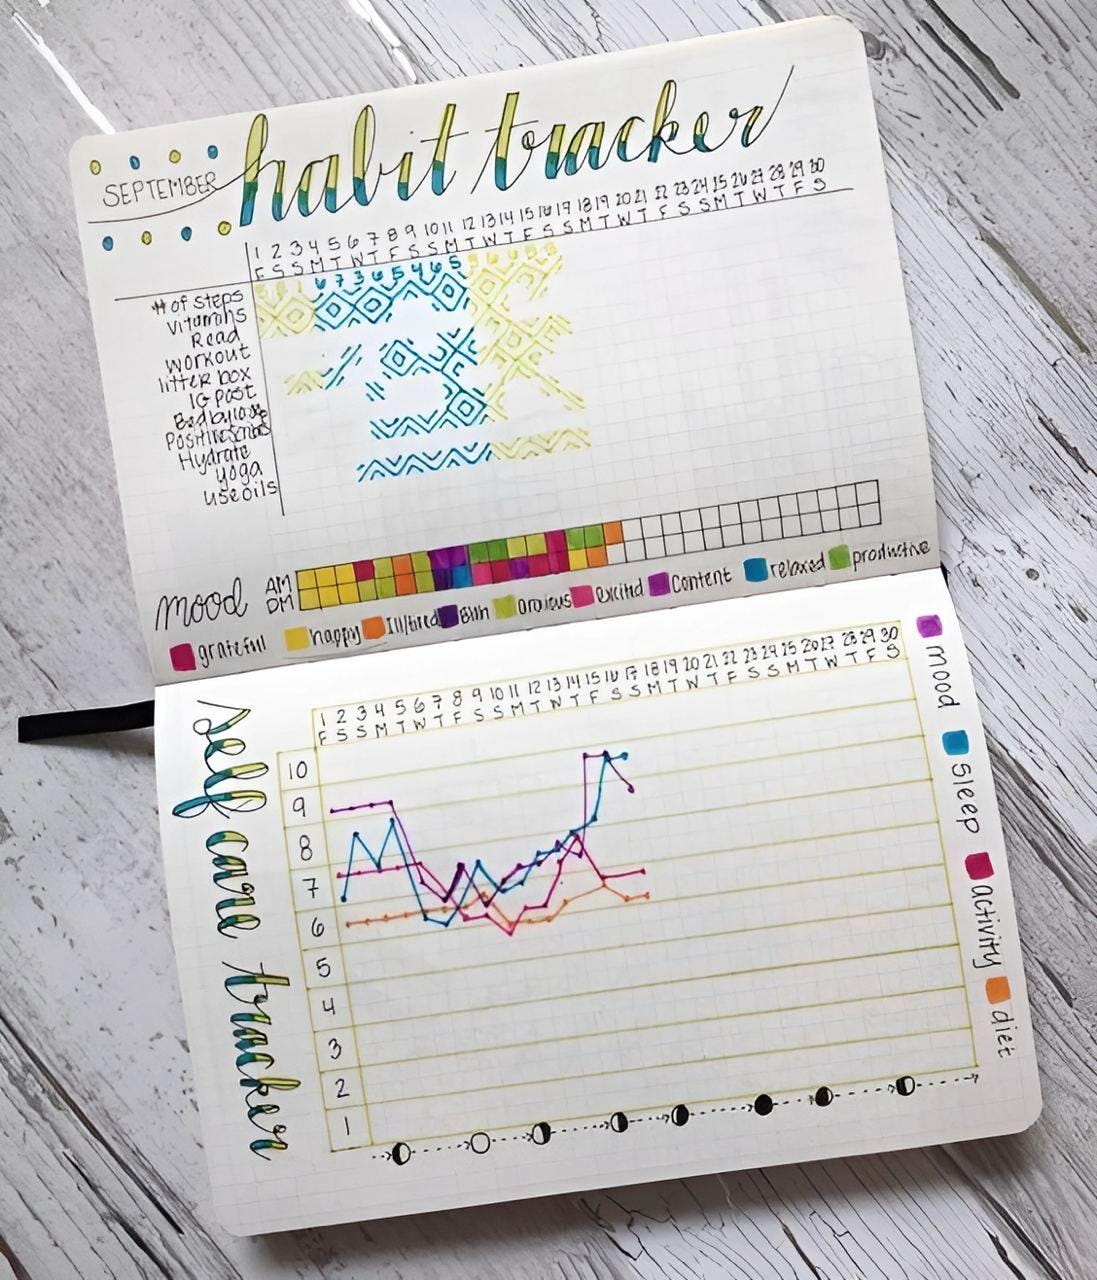 habit tracker
SEPTEMBER
1 2 3 4 5 6 7 8 9 10 11 12 13 14 15 16 17 18 19 20 21 22 23 24 25 26 27 28 29 30
F S S M T W T F S S M T W T F S S M T W T F S S M T W T F S
# of steps
Vitamins
Read
Workout
litter box
IG post
Hydrate
yoga
use oils
mood
AM
PM
grateful
happy
Ill/tired
Anxious
excited
Content
relaxed
productive
self care tracker
1 2 3 4 5 6 7 8 9 10 11 12 13 14 15 16 17 18 19 20 21 22 23 24 25 26 27 28 29 30
F S S M T W T F S S M T W T F S S M T W T F S S M T W T F S
10
9
8
7
6
5
4
3
2
1
mood
Sleep
activity
diet